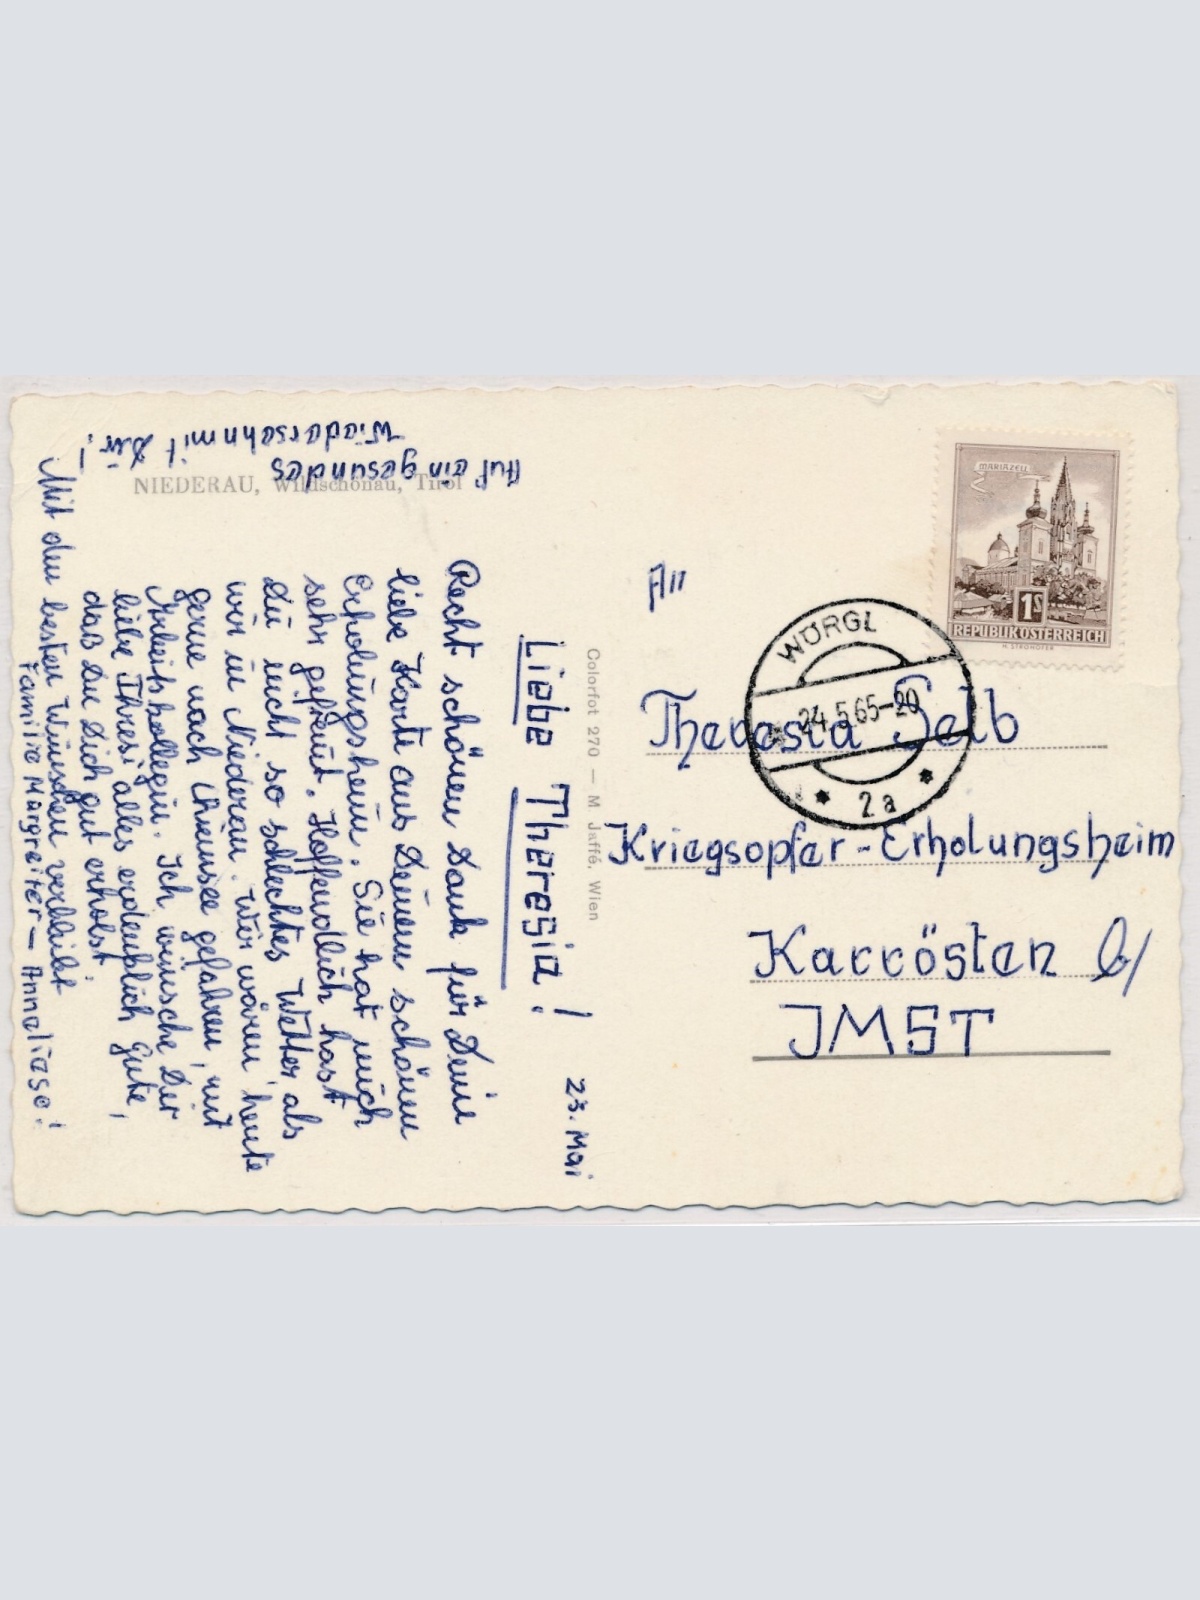 NIEDERAU, Wildschönau, Tirol
23. Mai
Liebe Theresia!
Recht schönen Dank für Deine
liebe Karte aus Deinem schönen
Erholungsheim. Sie hat mich
sehr gefreut. Hoffendlich hast
Du nicht so schlechtes Wetter als
wir in Niederau. Wir wären heute
gerne nach Chiemsee gefahren, mit
Arbeitskollegin. Ich wünsche Dir
liebe Thresi alles erdenklich Gute,
daß Du Dich gut erholst
Mit den besten Wünschen verbleibt
Familie Margreiter - Anneliese!
Auf ein gesundes
Wiedersehn mit Dir!
Colorfot 270 — M. Jaffé, Wien
MARIAZELL
1S
REPUBLIK ÖSTERREICH
H. STROHOFER
WÖRGL
24.5.65-20
* 2a *
An
Theresia Selb
Kriegsopfer-Erholungsheim
Karrösten b/
JMST